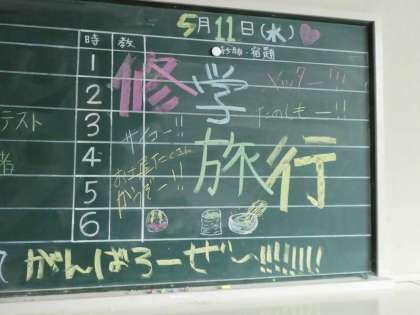 5月11日(水)
時
教
・宿題
1
2
3
4
5
6
修学旅行
テスト
者
たのしもー!!
サイコー!!
お土産たくさん
かうぞー!!
がんばろーぜ〜!!!!!!!